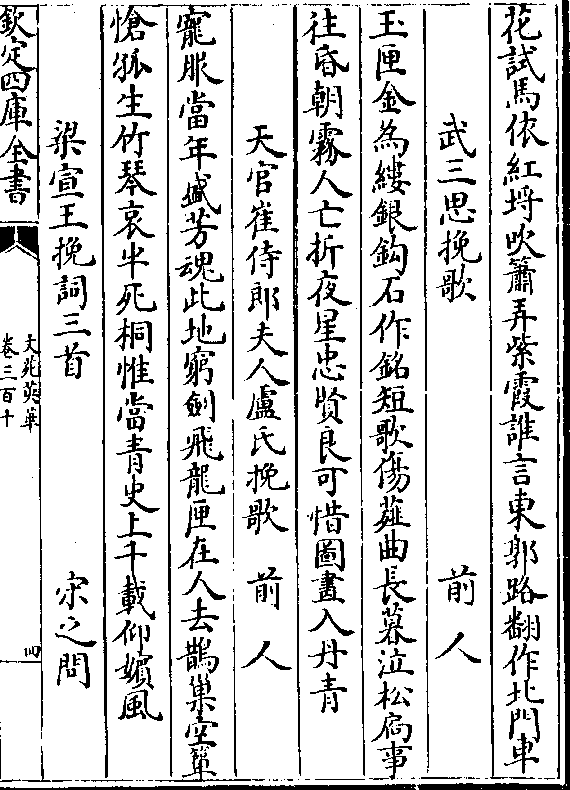 花試馬依紅埒吹簫弄紫霞誰言東郭路翻作北門車
武三思挽歌 前人
玉匣金為縷銀鈎石作銘短歌傷薤曲長暮泣松扃事
往昏朝霧人亡折夜星忠賢良可惜圖畫入丹青
天官崔侍郎夫人盧氏挽歌 前人
寵服當年盛芳魂此地窮劍飛龍匣在人去鵲巢空簟
愴孤生竹琴哀半死桐惟當青史上千載仰嬪風
梁宣王挽詞三首 宋之問
欽定四庫全書
文苑英華
卷三百十
四